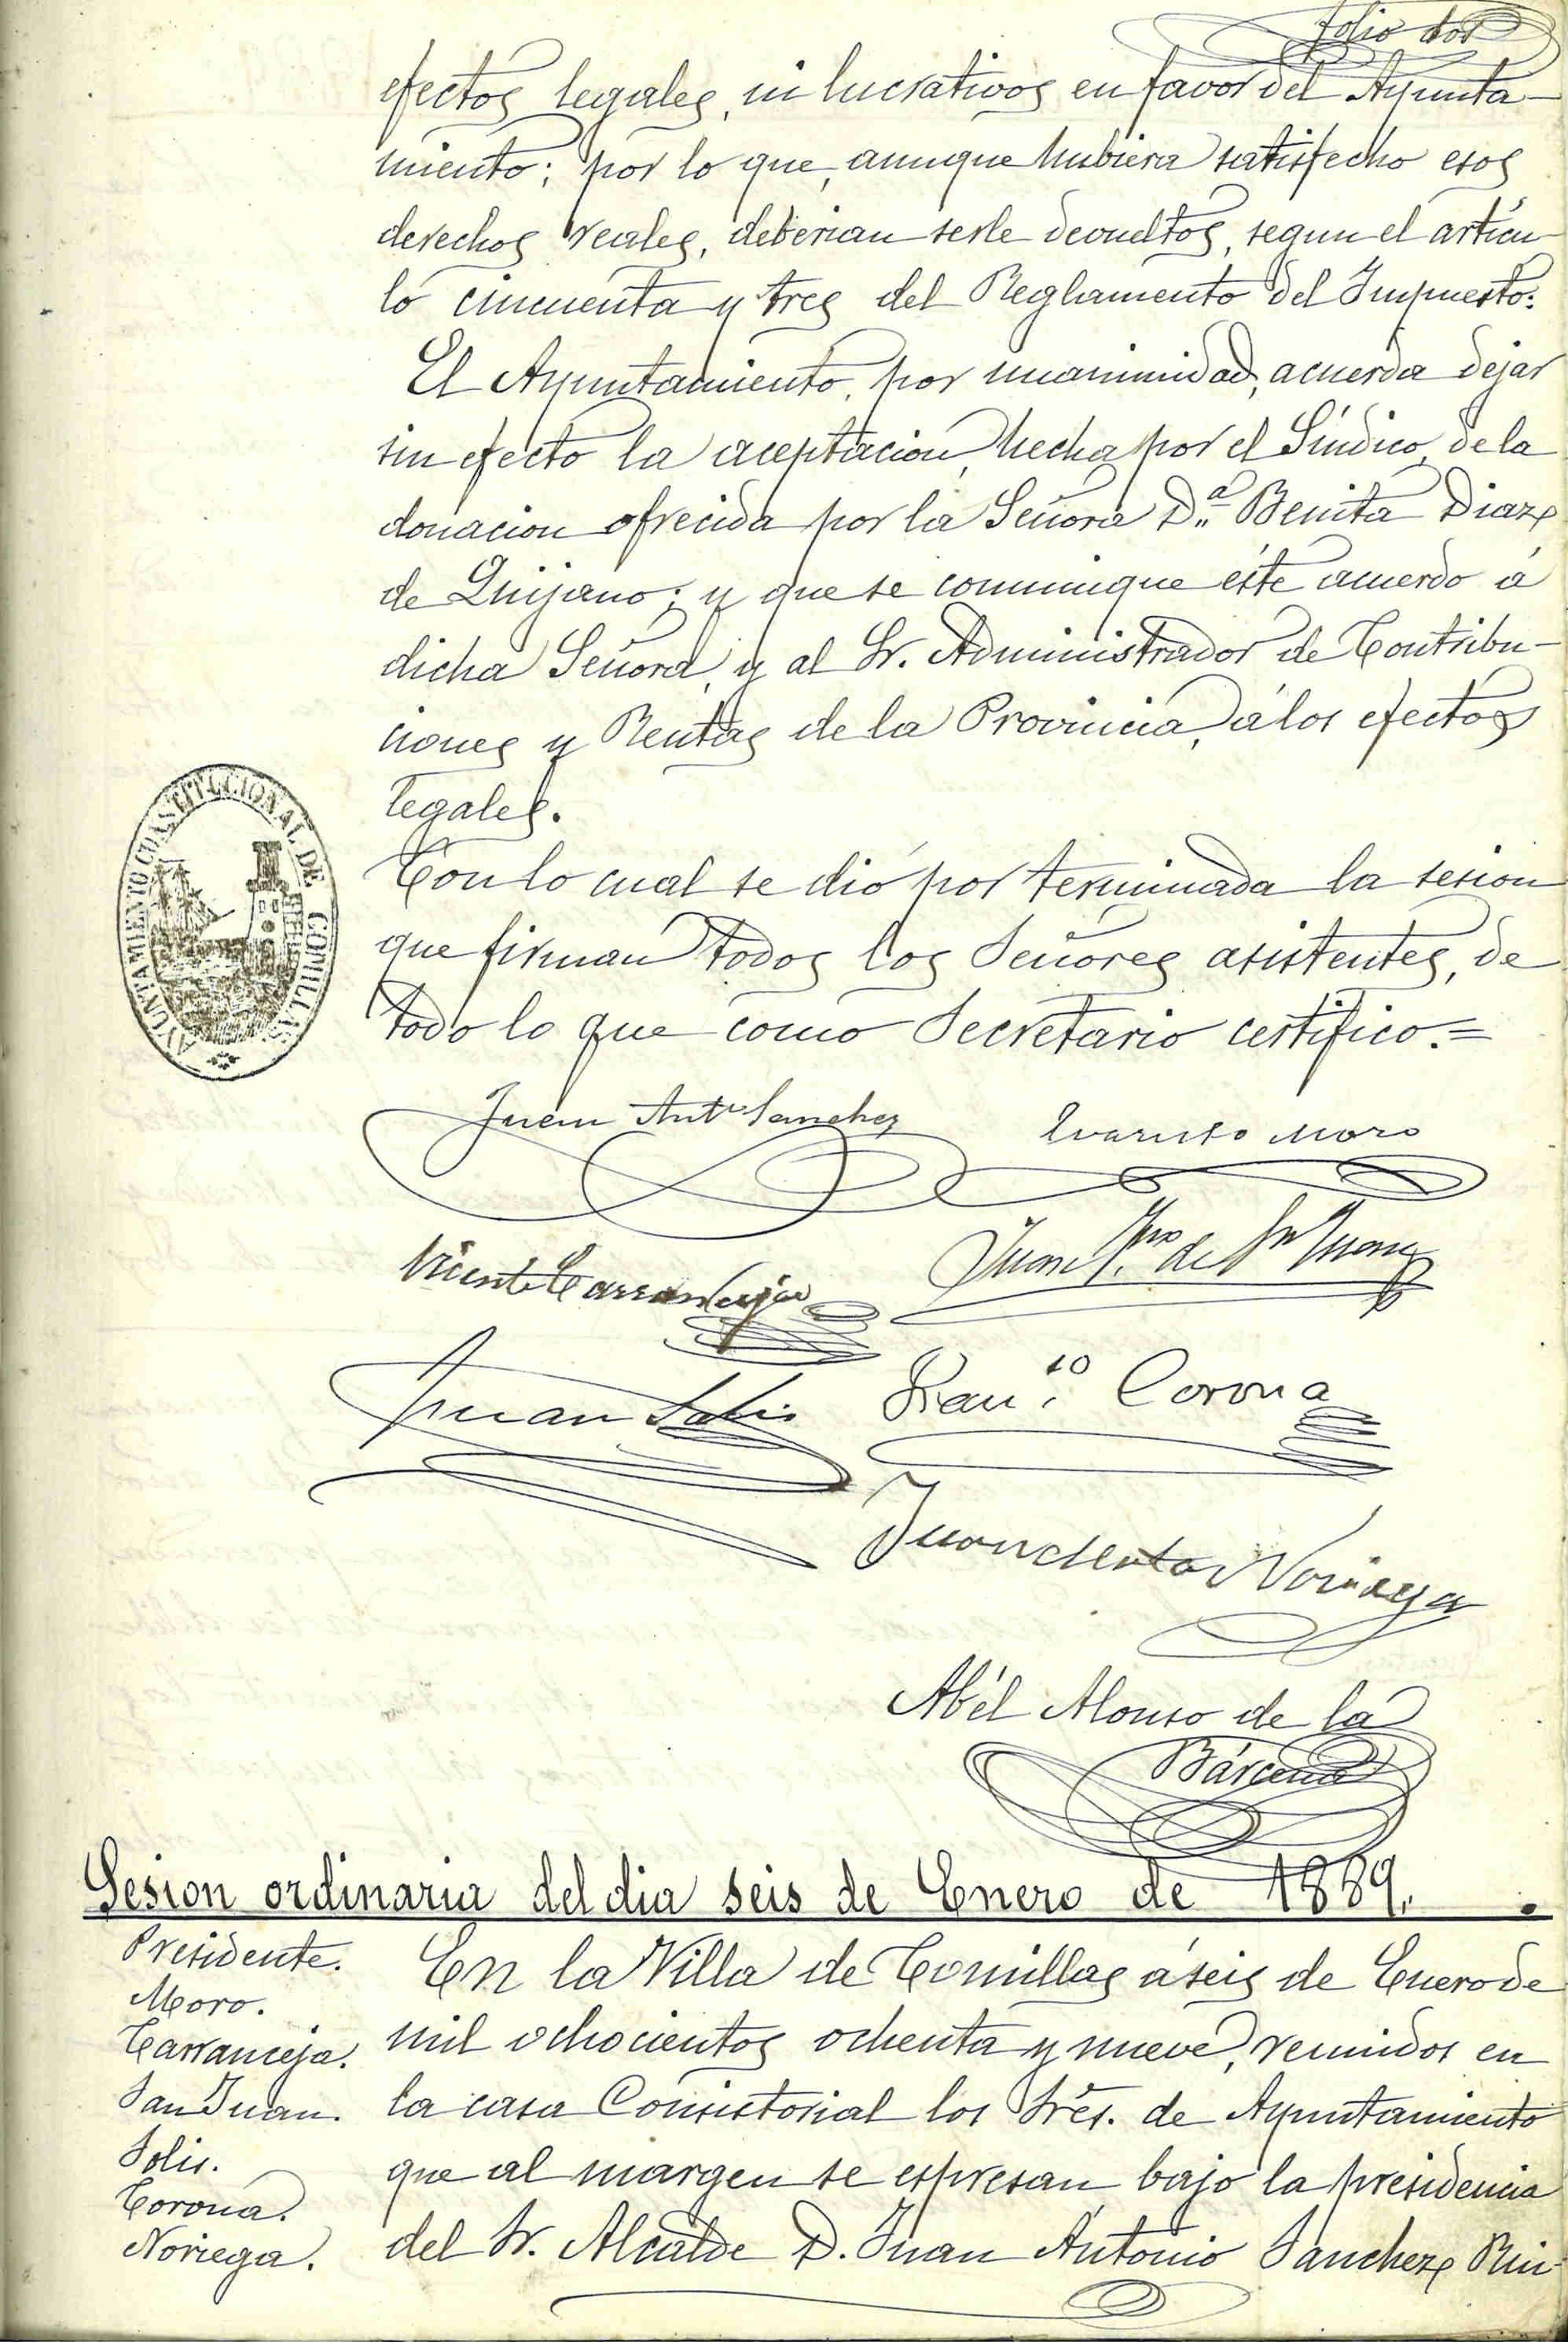 folio dos
efectos legales, ni lucrativos en favor del Ayunta-
miento; por lo que, aunque hubiera satisfecho esos
derechos reales, deberian serle devueltos, segun el artícu-
lo cincuenta y tres del Reglamento del Impuesto.
El Ayuntamiento, por unanimidad, acuerda dejar
sin efecto la aceptacion, hecha por el Síndico, de la
donacion ofrecida por la Señora D.ª Benita Diaz
de Quijano; y que se comunique éste acuerdo á
dicha Señora, y al Sr. Administrador de Contribu-
ciones y Rentas de la Provincia, á los efectos
legales.
AYUNTAMIENTO CONSTITUCIONAL DE COMILLAS
Con lo cual se dió por terminada la sesion
que firman todos los Señores asistentes, de
todo lo que como Secretario certifico.=
Juan Ant.º Sanchez
Evaristo Moro
Vicente Carranceja
Juan de Sn Juan
Juan Solis
Fran.co Corona
Juan Noriega
Abél Alonso de la
Bárcena
Sesion ordinaria del dia seis de Enero de 1889.
Presidente.
Moro.
Carranceja.
San Juan.
Solis.
Corona.
Noriega.
En la Villa de Comillas á seis de Enero de
mil ochocientos ochenta y nueve, reunidos en
la casa Consistorial los Sres. de Ayuntamiento
que al margen se espresan bajo la presidencia
del Sr. Alcalde D. Juan Antonio Sanchez Rui-